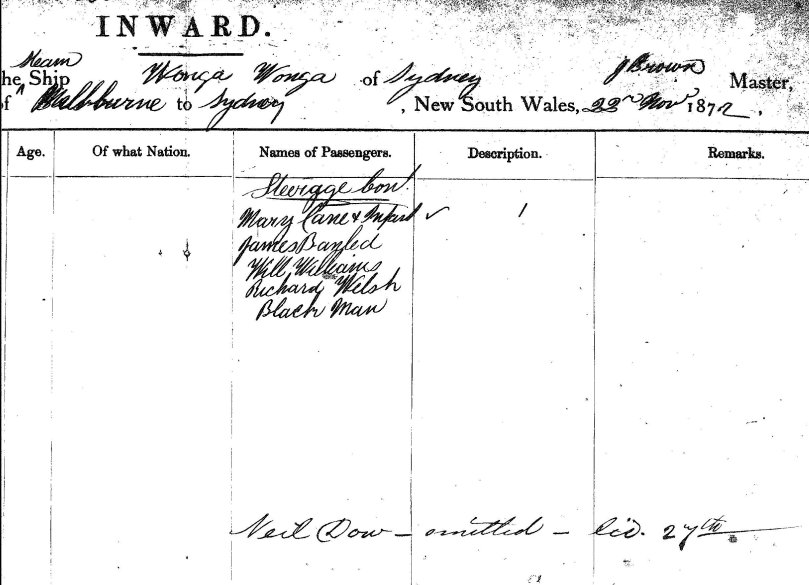 INWARD.
Steam
he Ship Wonga Wonga of Sydney J Brown Master,
of Melbourne to Sydney , New South Wales, 22nd Novr 1872.
Age. Of what Nation. Names of Passengers. Description. Remarks.
Steerage con!
Mary Cane & Infant ✓ 1
James
Will Williams
Richard Welsh
Black Man
Neil Dow – omitted – 27th